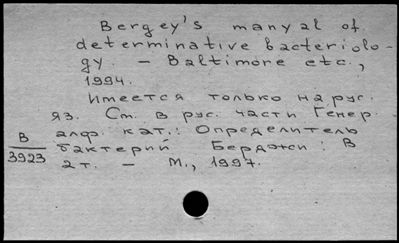 Bergey's manyal of
determinative bacteriolo-
gy. – Baltimore etc.,
1994.
Имеется только на рус.
яз. См. в рус. части Генер.
алф. кат.: Определитель
В
3923
бактерий Берджи: В
2 т. – М., 1997.